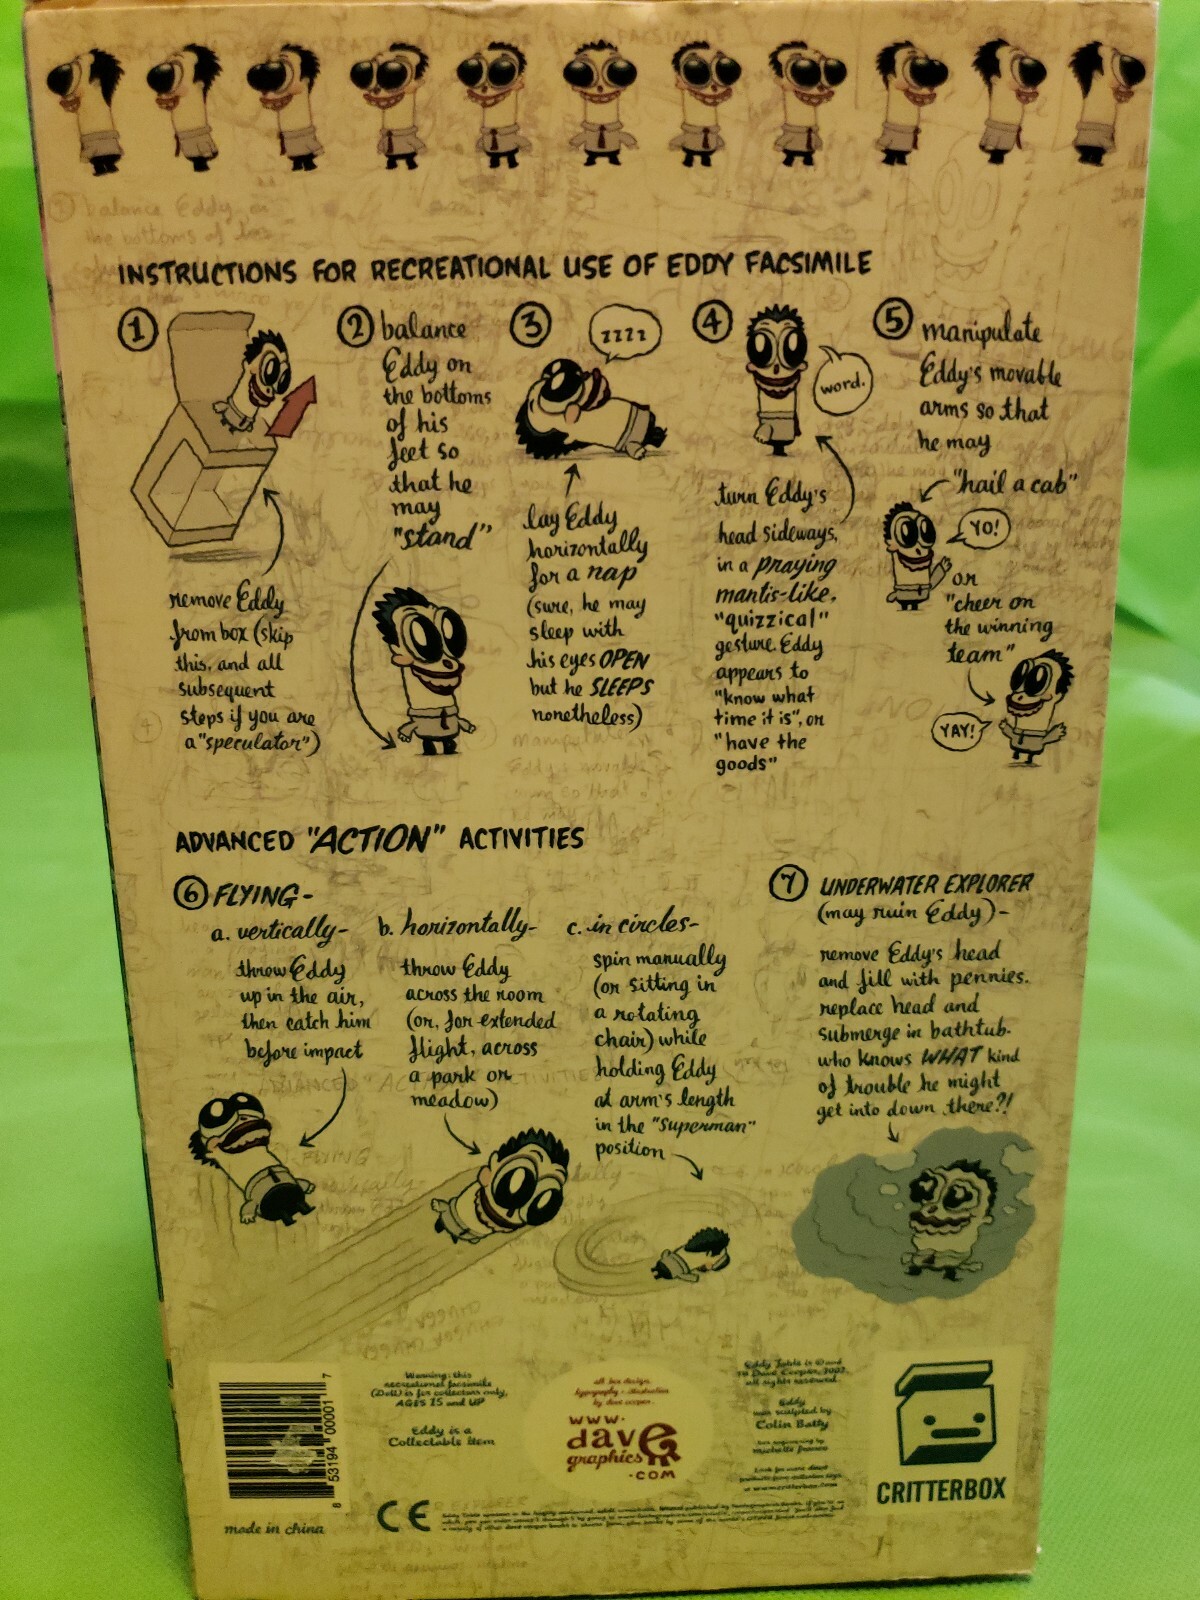 INSTRUCTIONS FOR RECREATIONAL USE OF EDDY FACSIMILE
1
remove Eddy
from box (skip
this, and all
subsequent
steps if you are
a "speculator")
2 balance
Eddy on
the bottoms
of his
feet so
that he
may
"stand"
3
zzzz
lay Eddy
horizontally
for a nap
(sure, he may
sleep with
his eyes OPEN
but he SLEEPS
nonetheless)
4
word.
turn Eddy's
head sideways,
in a praying
mantis-like,
"quizzical"
gesture. Eddy
appears to
"know what
time it is", or
"have the
goods"
5 manipulate
Eddy's movable
arms so that
he may
"hail a cab"
YO!
or
"cheer on
the winning
team"
YAY!
ADVANCED "ACTION" ACTIVITIES
6 FLYING-
a. vertically-
throw Eddy
up in the air,
then catch him
before impact
b. horizontally-
throw Eddy
across the room
(or, for extended
flight, across
a park or
meadow)
c. in circles-
spin manually
(or sitting in
a rotating
chair) while
holding Eddy
at arm's length
in the "superman"
position
7 UNDERWATER EXPLORER
(may ruin Eddy)-
remove Eddy's head
and fill with pennies.
replace head and
submerge in bathtub-
who knows WHAT kind
of trouble he might
get into down there?!
8 53194 00001 7
made in china
Warning: this
recreational facsimile
(Doll) is for collectors only,
AGES 15 and UP
Eddy is a
Collectable item
CE
all box design,
typography + illustration
by dave cooper.
www.
dave
graphics
.com
Eddy Table is ©and
TM Dave Cooper, 2002
all rights reserved.
Eddy
was sculpted by
Colin Batty
CRITTERBOX